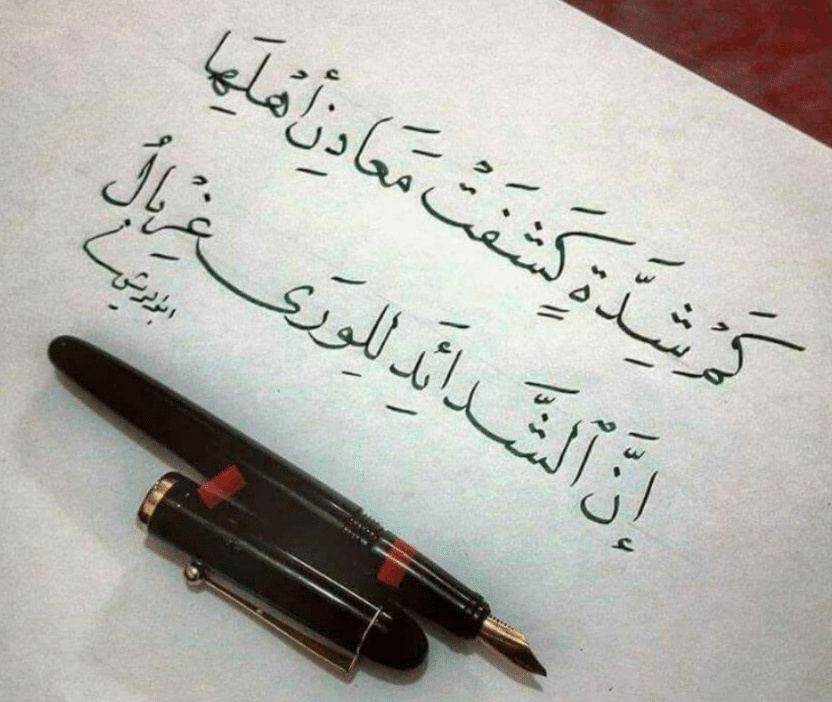 كَمْ شِدَّةٍ كَشَفَتْ مَعَادِنَ أَهْلَهَا
إِنَّ ٱلشَّدَائِدَ لِلوَرَى غِرْبَالُ